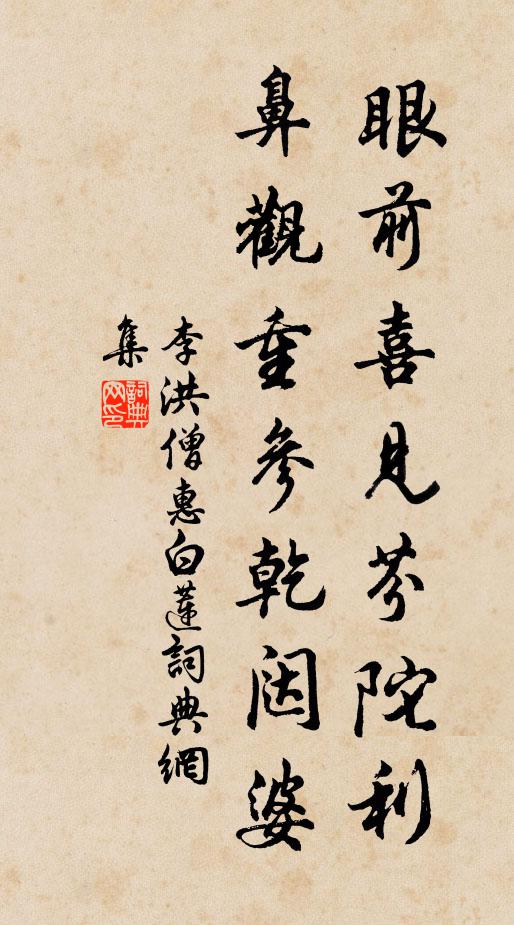 眼前喜見芬陀利
鼻觀重參乾闼婆
李洪僧惠白蓮詞典網
集
詞典
网印